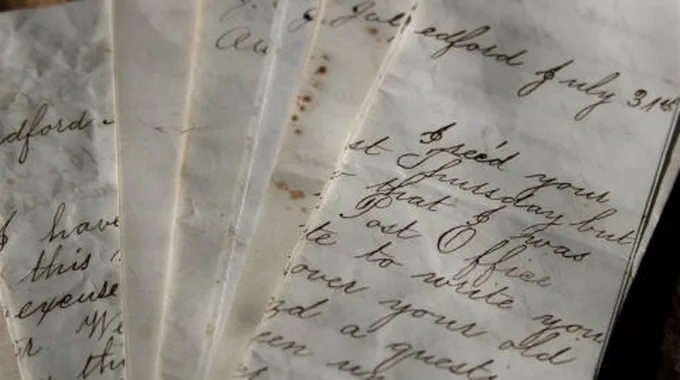 edford July 31st
I rec'd your
st Thursday but
that I was
Post Office
te to write you
over your old
a questi
een
J. Jul
Au
edford
I have
this
excuse
We
thi